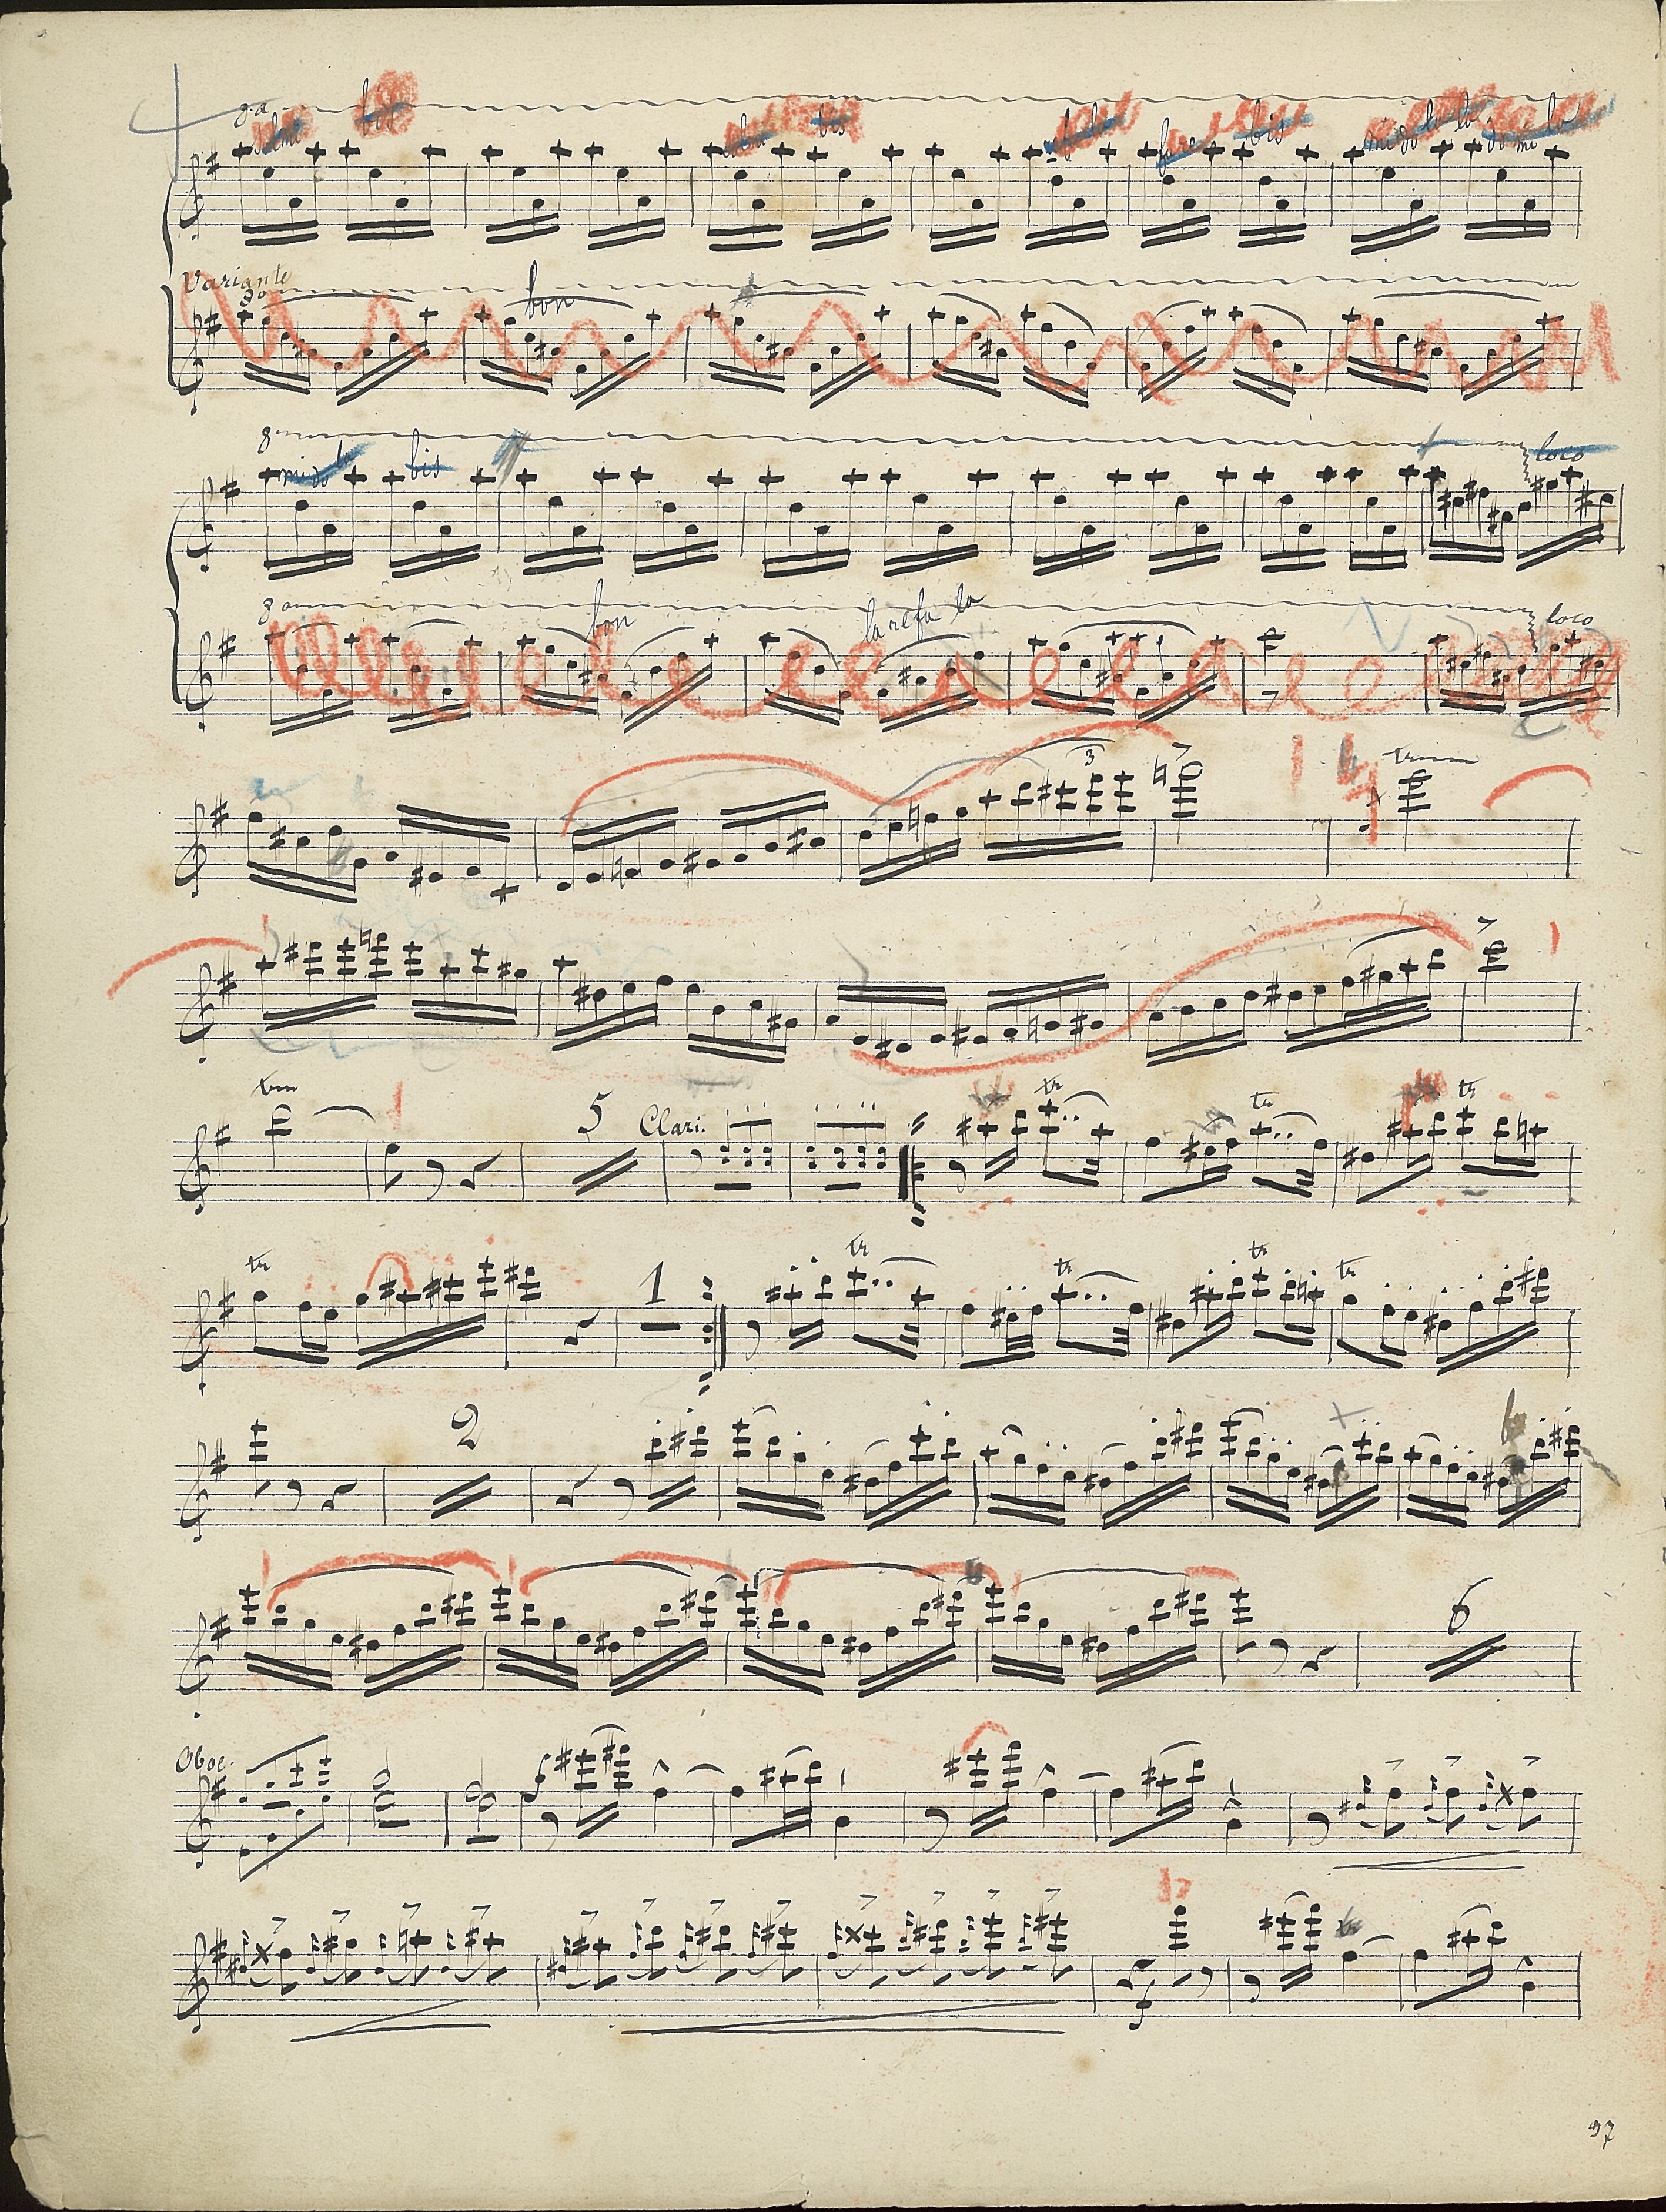 8.a
bis
bis
bis
mi do
do mi la
Variante
8a
bon
8
mi do la
bis
loco
8a
bon
la re fa la
loco
3
tr
tr
5
Clari.
tr
tr
tr
tr
1
tr
tr
tr
tr
2
6
Oboe.
f
f
97